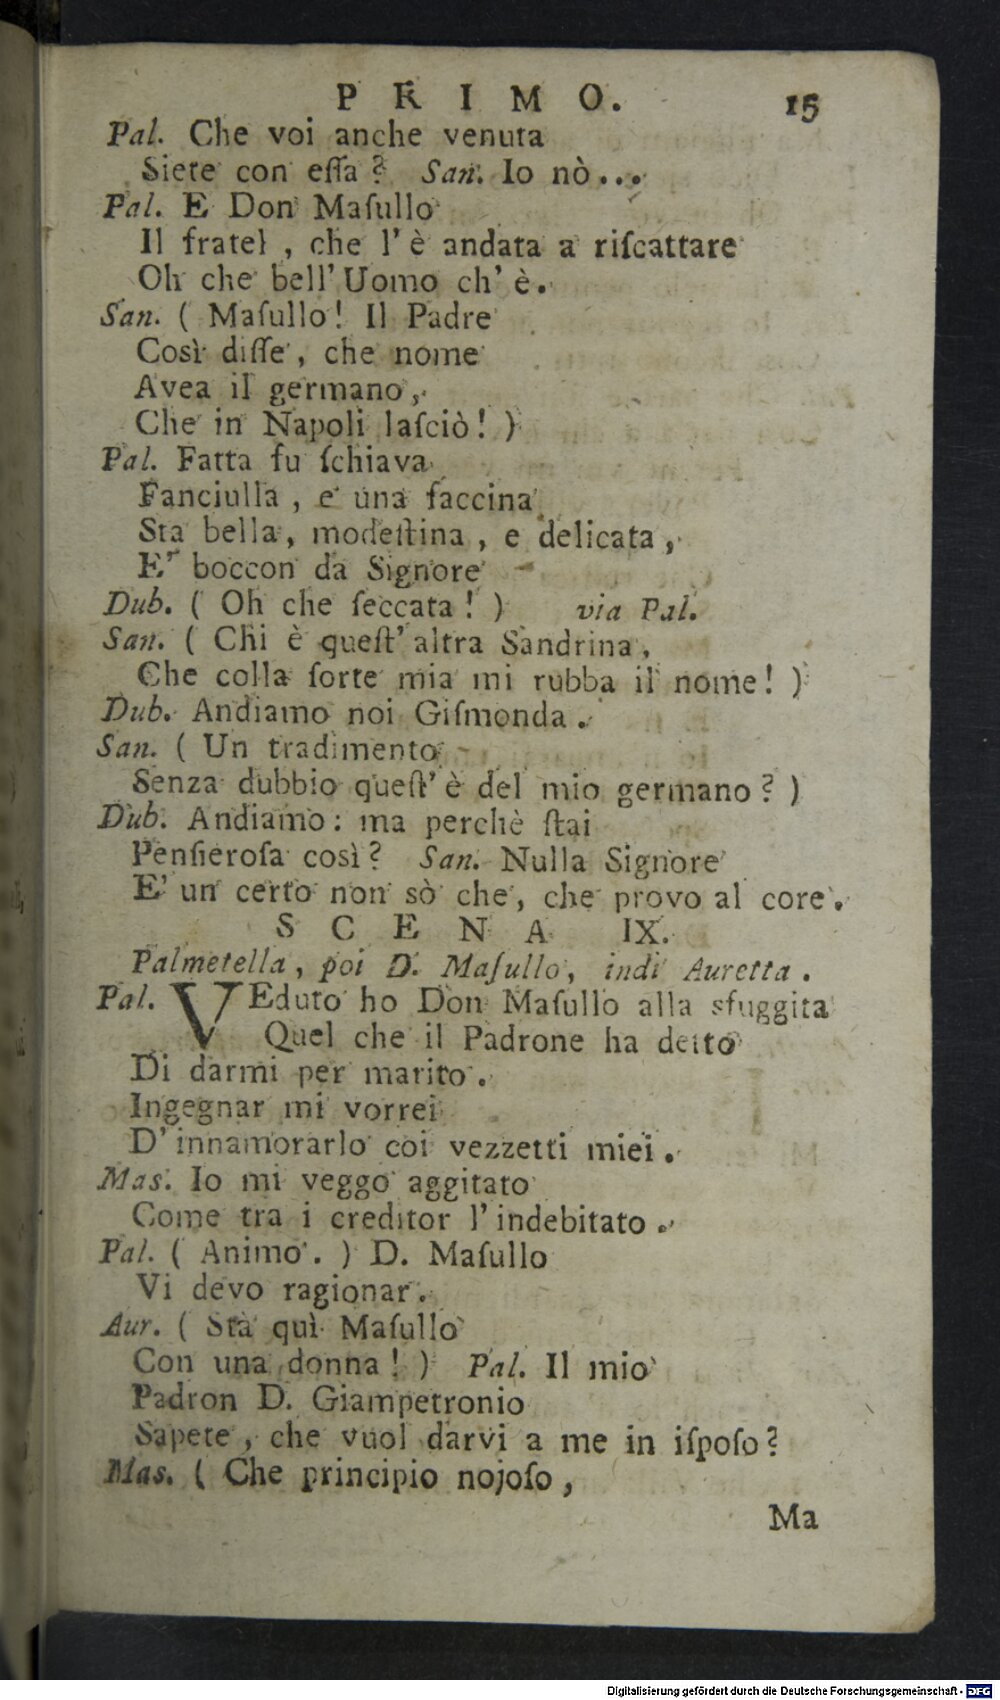 PRIMO. 15
Pal. Che voi anche venuta
Siete con eſſa? San. Io nò...
Pal. E Don Maſullo
Il fratel, che l'è andata a riſcattare
Oh che bell'Uomo ch'è.
San. ( Maſullo! Il Padre
Così diſſe, che nome
Avea il germano,
Che in Napoli laſciò! )
Pal. Fatta fu ſchiava
Fanciulla, e una faccina
Sta bella, modeſtina, e delicata,
E' boccon da Signore
Dub. ( Oh che ſeccata! ) via Pal.
San. ( Chi è queſt'altra Sandrina,
Che colla ſorte mia mi rubba il nome! )
Dub. Andiamo noi Giſmonda.
San. ( Un tradimento
Senza dubbio queſt'è del mio germano? )
Dub. Andiamo: ma perchè ſtai
Penſieroſa così? San. Nulla Signore
E' un certo non sò che, che provo al core.
SCENA IX.
Palmetella, poi D. Maſullo, indi Auretta.
Pal. VEduto ho Don Maſullo alla sfuggita
Quel che il Padrone ha detto
Di darmi per marito.
Ingegnar mi vorrei
D'innamorarlo coi vezzetti miei.
Mas. Io mi veggo aggitato
Come tra i creditor l'indebitato.
Pal. ( Animo. ) D. Maſullo
Vi devo ragionar.
Aur. ( Stà quì Maſullo
Con una donna! ) Pal. Il mio
Padron D. Giampetronio
Sapete, che vuol darvi a me in iſpoſo?
Mas. ( Che principio nojoſo,
Ma
Digitalisierung gefördert durch die Deutsche Forschungsgemeinschaft - DFG